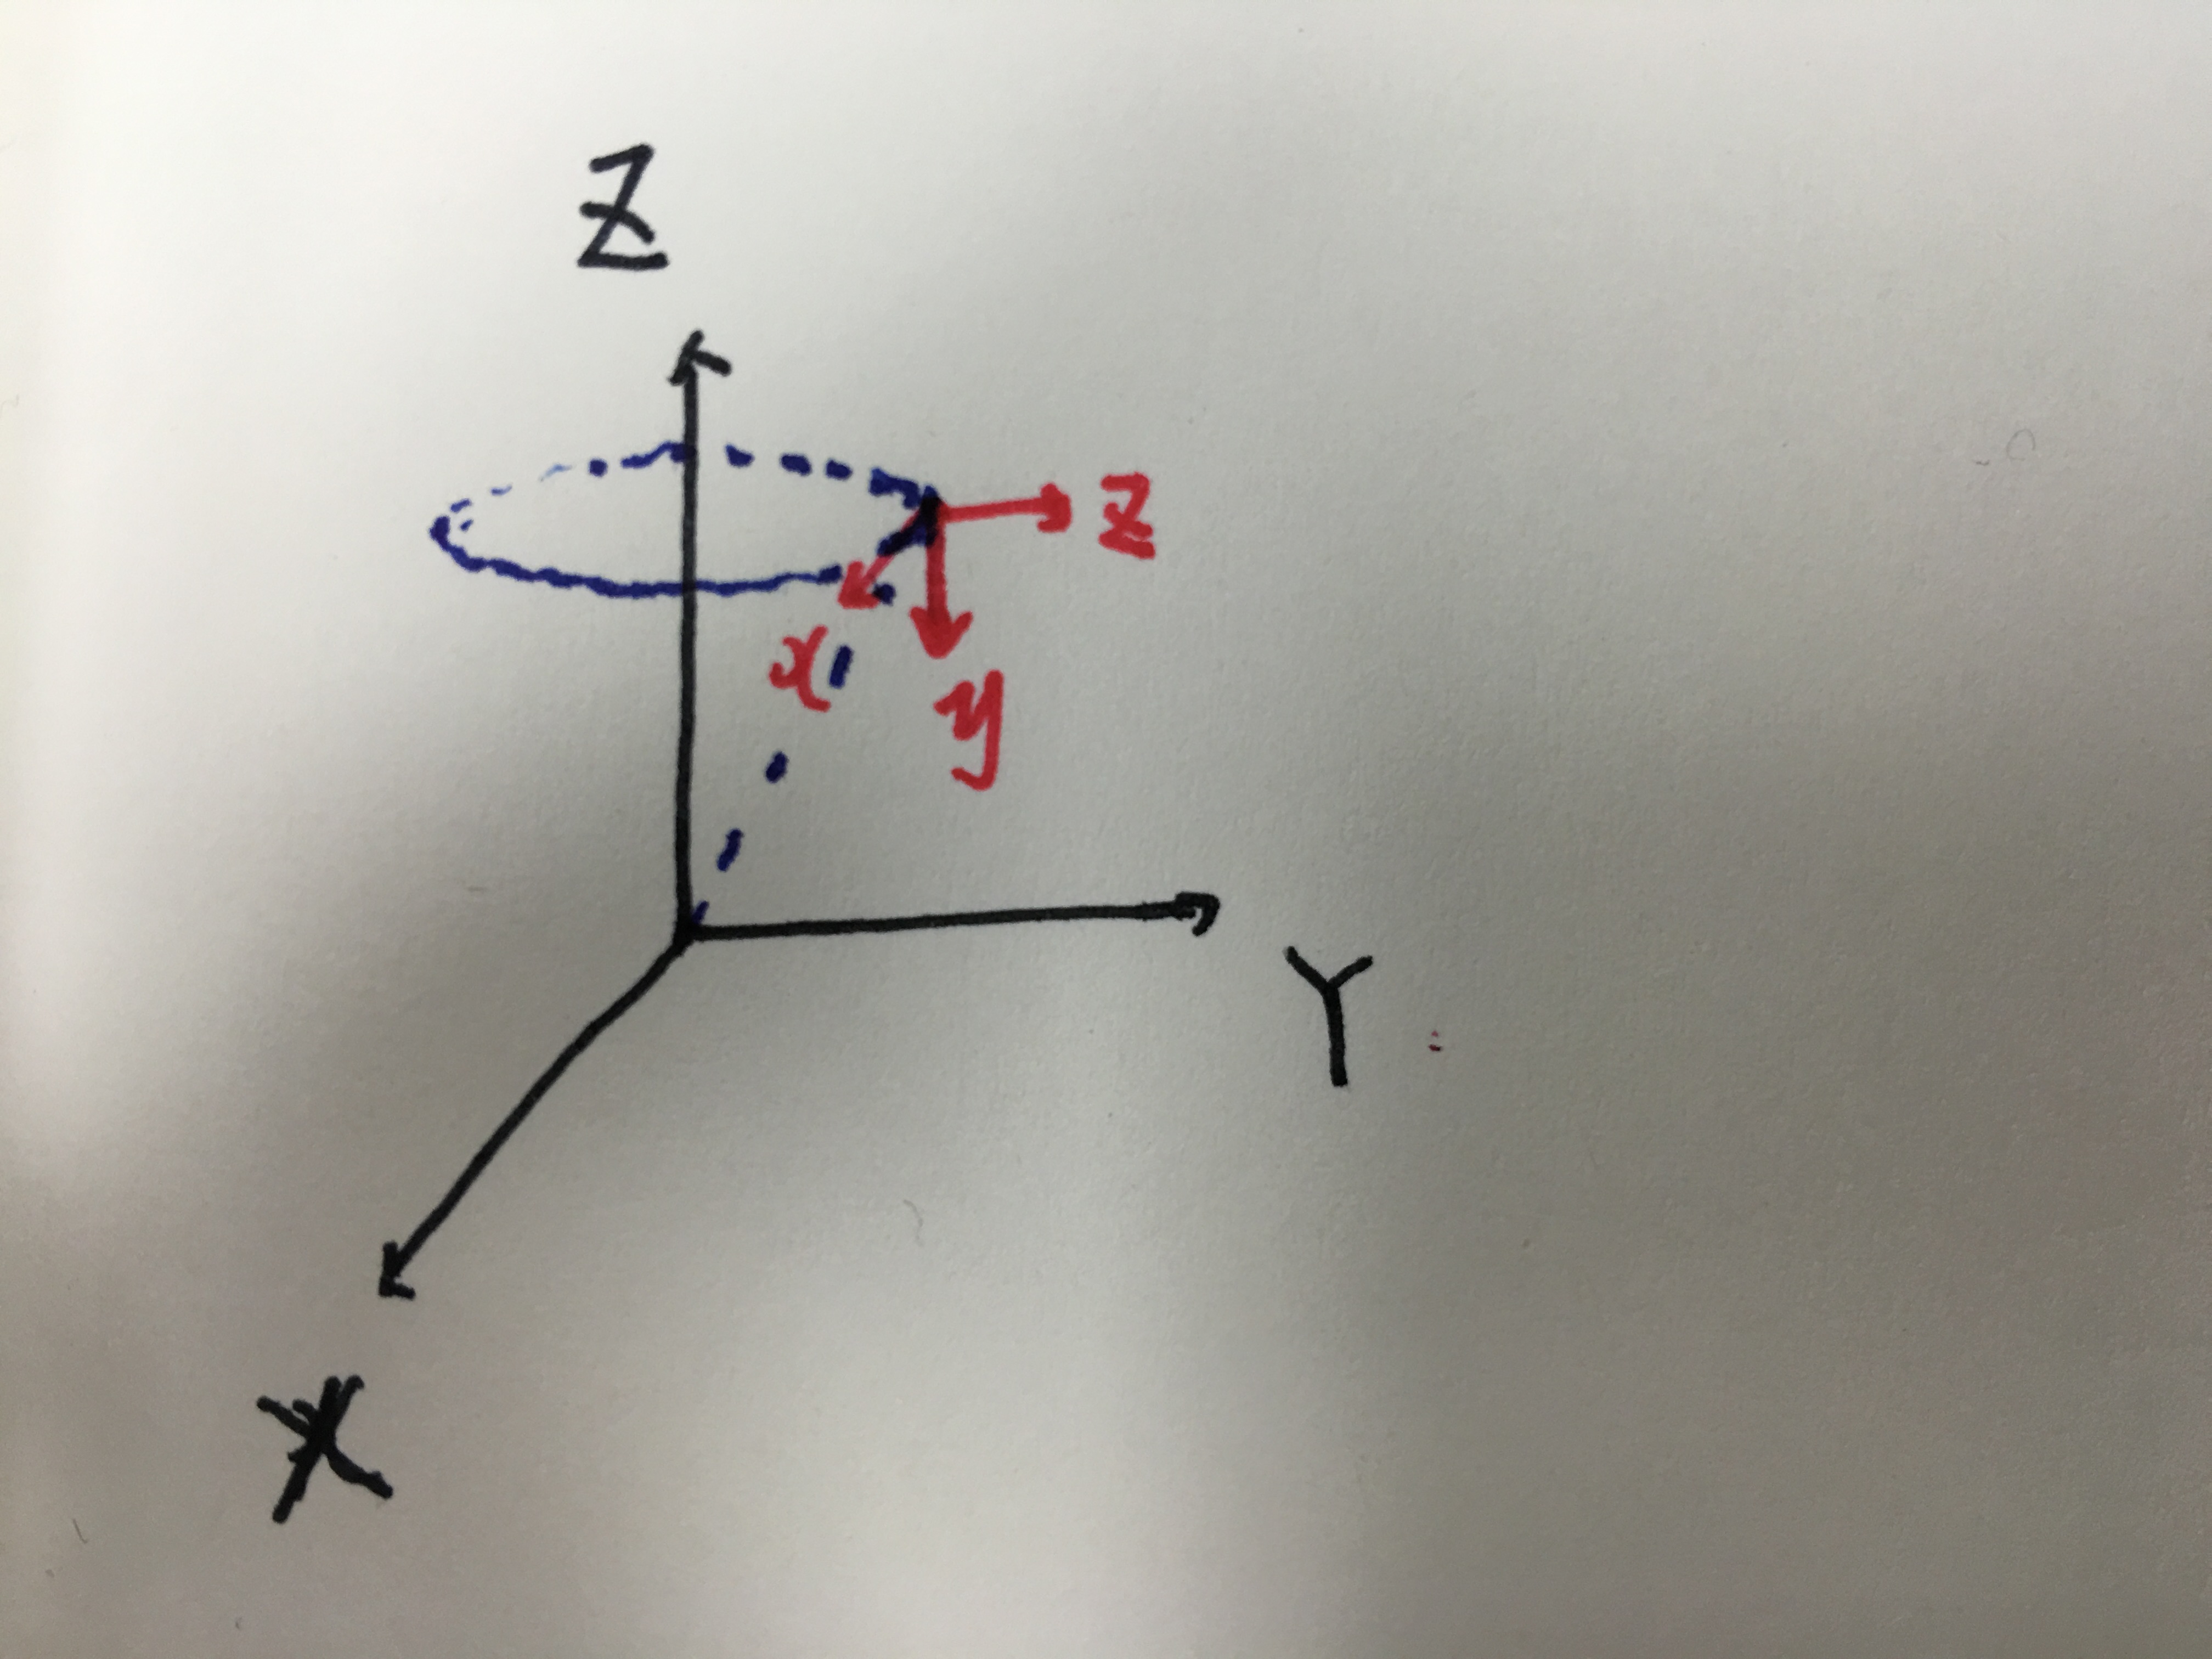 Z
z
x
y
Y
X